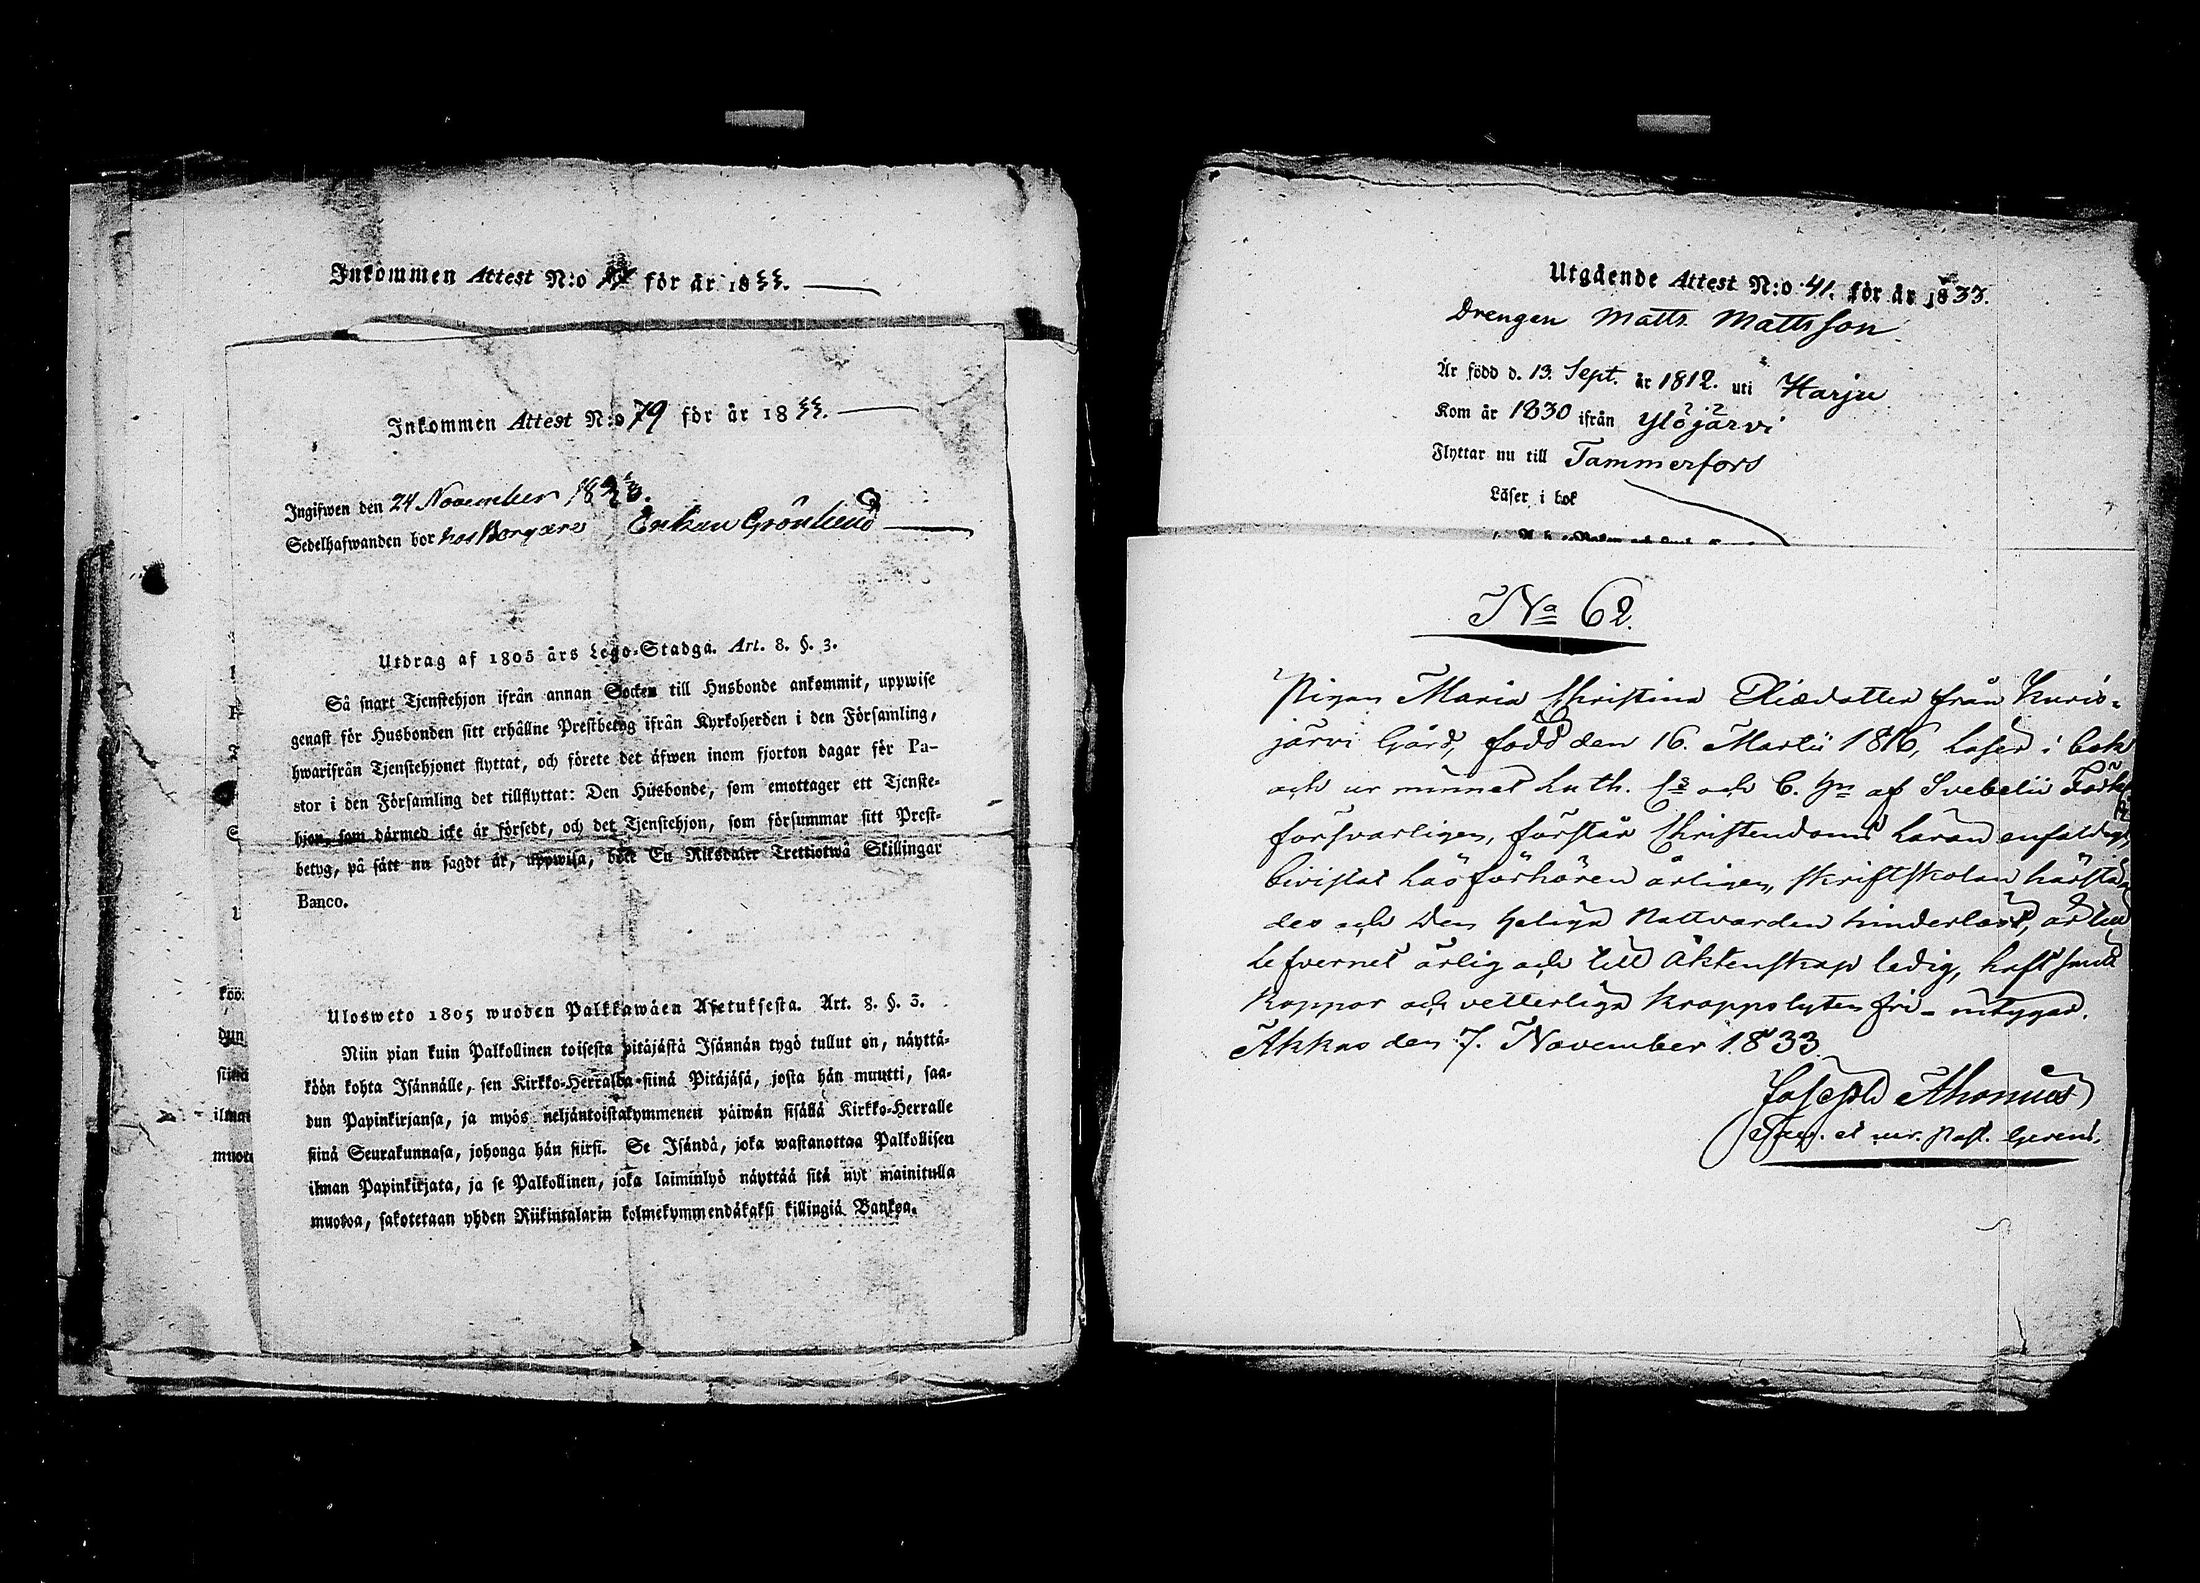 Inkommen Attest N:o för år 1833.
Inkommen Attest N:o 79 för år 1833.
Ingifwen den 24 November 1833.
Sedelhafwanden bor hos Borgare Enkan Grönlund
Utdrag af 1805 års Lego-Stadga. Art. 8. §. 3.
Så snart Tjenstehjon ifrån annan Socken till Husbonde ankommit, uppwise
genast för Husbonden sitt erhållne Prestbetyg ifrån Kyrkoherden i den Församling,
hwarifrån Tjenstehjonet flyttat, och förete det äfwen inom fjorton dagar för Pa-
stor i den Församling det tillflyttat: Den Husbonde, som emottager ett Tjenste-
hjon, som dårmed icke är försedt, och det Tjenstehjon, som försummar sitt Prest-
betyg, på sätt nu sagdt är, uppwisa, böte En Riksdaler Trettiotwå Skillingar
Banco.
Ulosweto 1805 wuoden Palkkawäen Asetuksesta. Art. 8. §. 3.
Niin pian kuin Palkollinen toisesta pitäjästä Isännän tygö tullut on, näyttä-
köön kohta Isännälle, sen Kirkko-Herralda siinä Pitäjäsä, josta hän muutti, saa-
dun Papinkirjansa, ja myös neljäntoistakymmenen päiwän sisällä Kirkko-Herralle
siinä Seurakunnasa, johonga hän siirsi. Se Isändä, joka wastanottaa Palkollisen
ilman Papinkirjata, ja se Palkollinen, joka laiminlyö näyttää sitä nyt mainitulla
muotoa, sakotetaan yhden Riikintalarin kolmekymmendäkaksi killingiä Bankoa.
Utgående Attest N:o 41. för år 1833.
Drengen Matts Mattsson
Är född d. 13. Sept. år 1812. uti Harju
Kom år 1830 ifrån Ylöjärvi
Flyttar nu till Tammerfors
Läser i bok
No 62.
Pigan Maria Christina Eliædotter från Kuris-
järvi Gård, född den 16. Martii 1816, läser i bok
och ur minnet Luth. Cs och C. Hn af Svebelii Förkl
försvarligen, förstår Christendoms läran enfaldigt,
bivistat Läsförhören årligen, skriftskolan härstä
des och Den Heliga Nattvarden hinderlöst, är till
lefvernet ärlig och till Äktenskap ledig, haft smitt
koppor och vetterliga kroppslyten fri - intygar.
Akkas den 7. November 1833.
Joseph Ahonius
et vur. Past. Gerens.